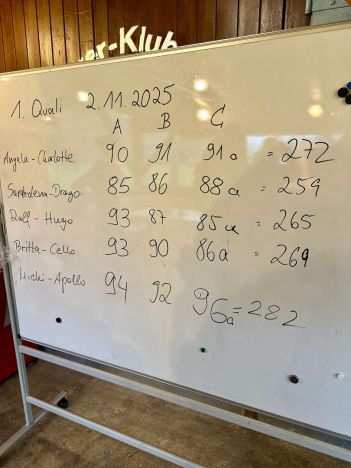 er-Klub
1. Quali 2.11.2025
A B C
Angela-Charlotte 90 91 91a = 272
85 86 88a = 259
Ralf - Hugo 93 87 85a = 265
Britta-Cello 93 90 86a = 269
Michi-Apollo 94 92 96a = 282